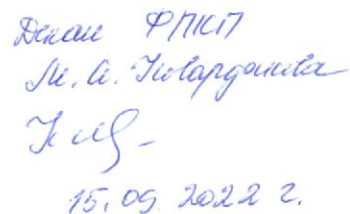 Декан ФПКП
М. А. Кварданова
15.09.2022 г.